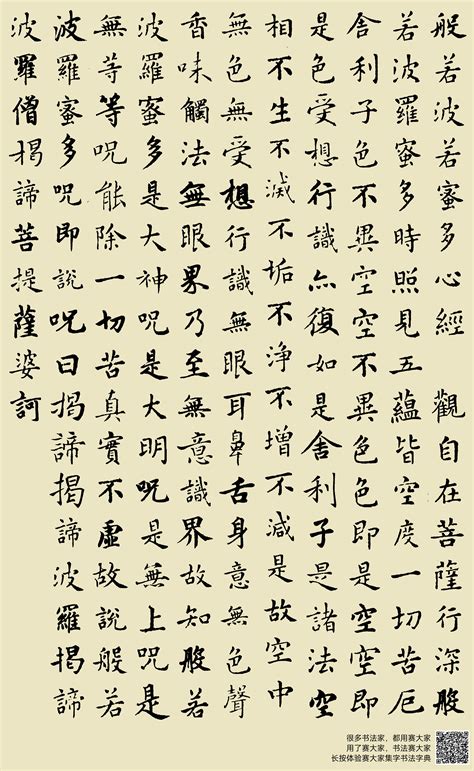 般若波若蜜多心經　觀自在菩薩行深般
若波羅蜜多時照見五蘊皆空度一切苦厄
舍利子色不異空空不異色色即是空空即
是色受想行識亦復如是舍利子是諸法空
相不生不滅不垢不淨不增不減是故空中
無色無受想行識無眼耳鼻舌身意無色聲
香味觸法無眼界乃至無意識界故知般若
波羅蜜多是大神呪是大明呪是無上呪是
無等等呪能除一切苦真實不虛故說般若
波羅蜜多呪即說呪曰揭諦揭諦波羅揭諦
波羅僧揭諦菩提薩婆訶
很多书法家，都用赛大家
用了赛大家，书法赛大家
长按体验赛大家集字书法字典